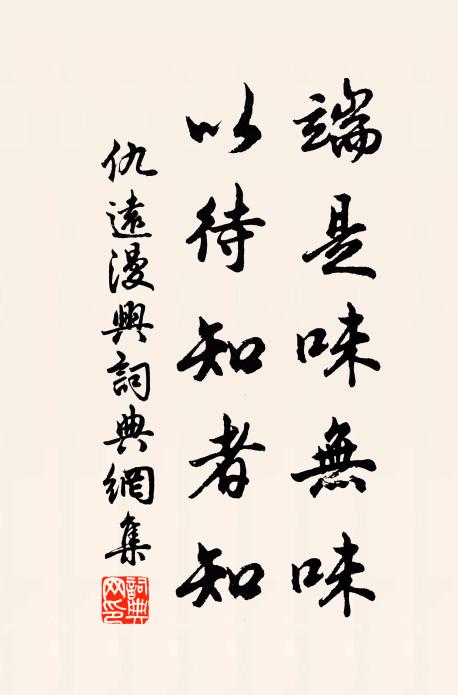 端是味無味
以待知者知
仇遠漫興詞典網集
詞典网印